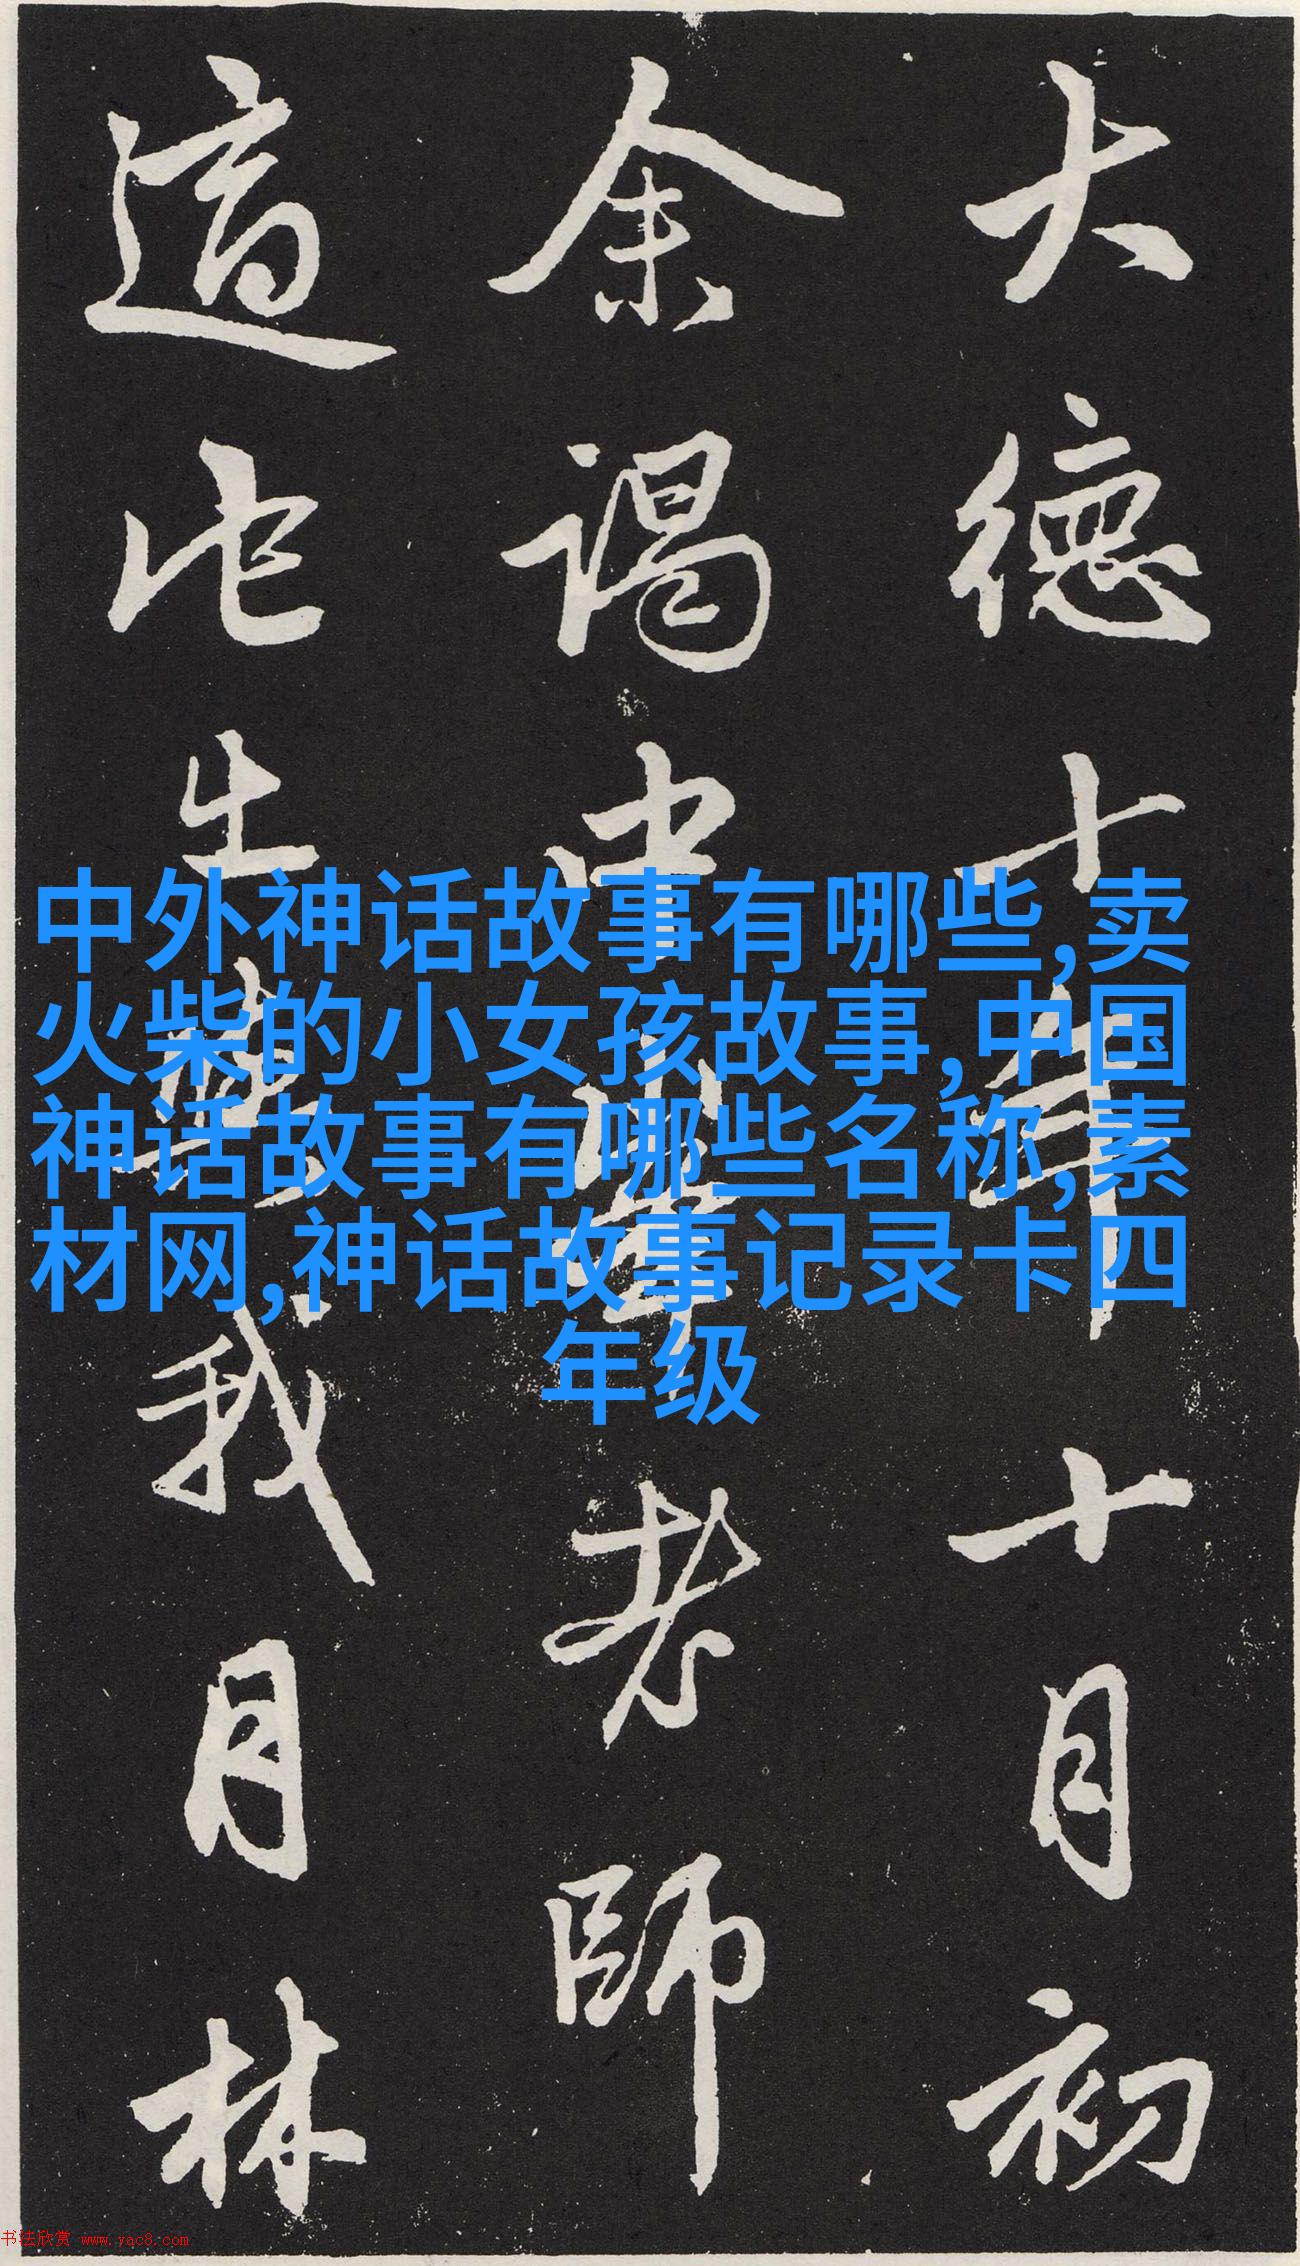 大德十年十月初
余謁中峯老師
適此我月林
中外神话故事有哪些,卖
火柴的小女孩故事,中国
神话故事有哪些名称,素
材网,神话故事记录卡四
年级
书法欣赏 www.yac8.com